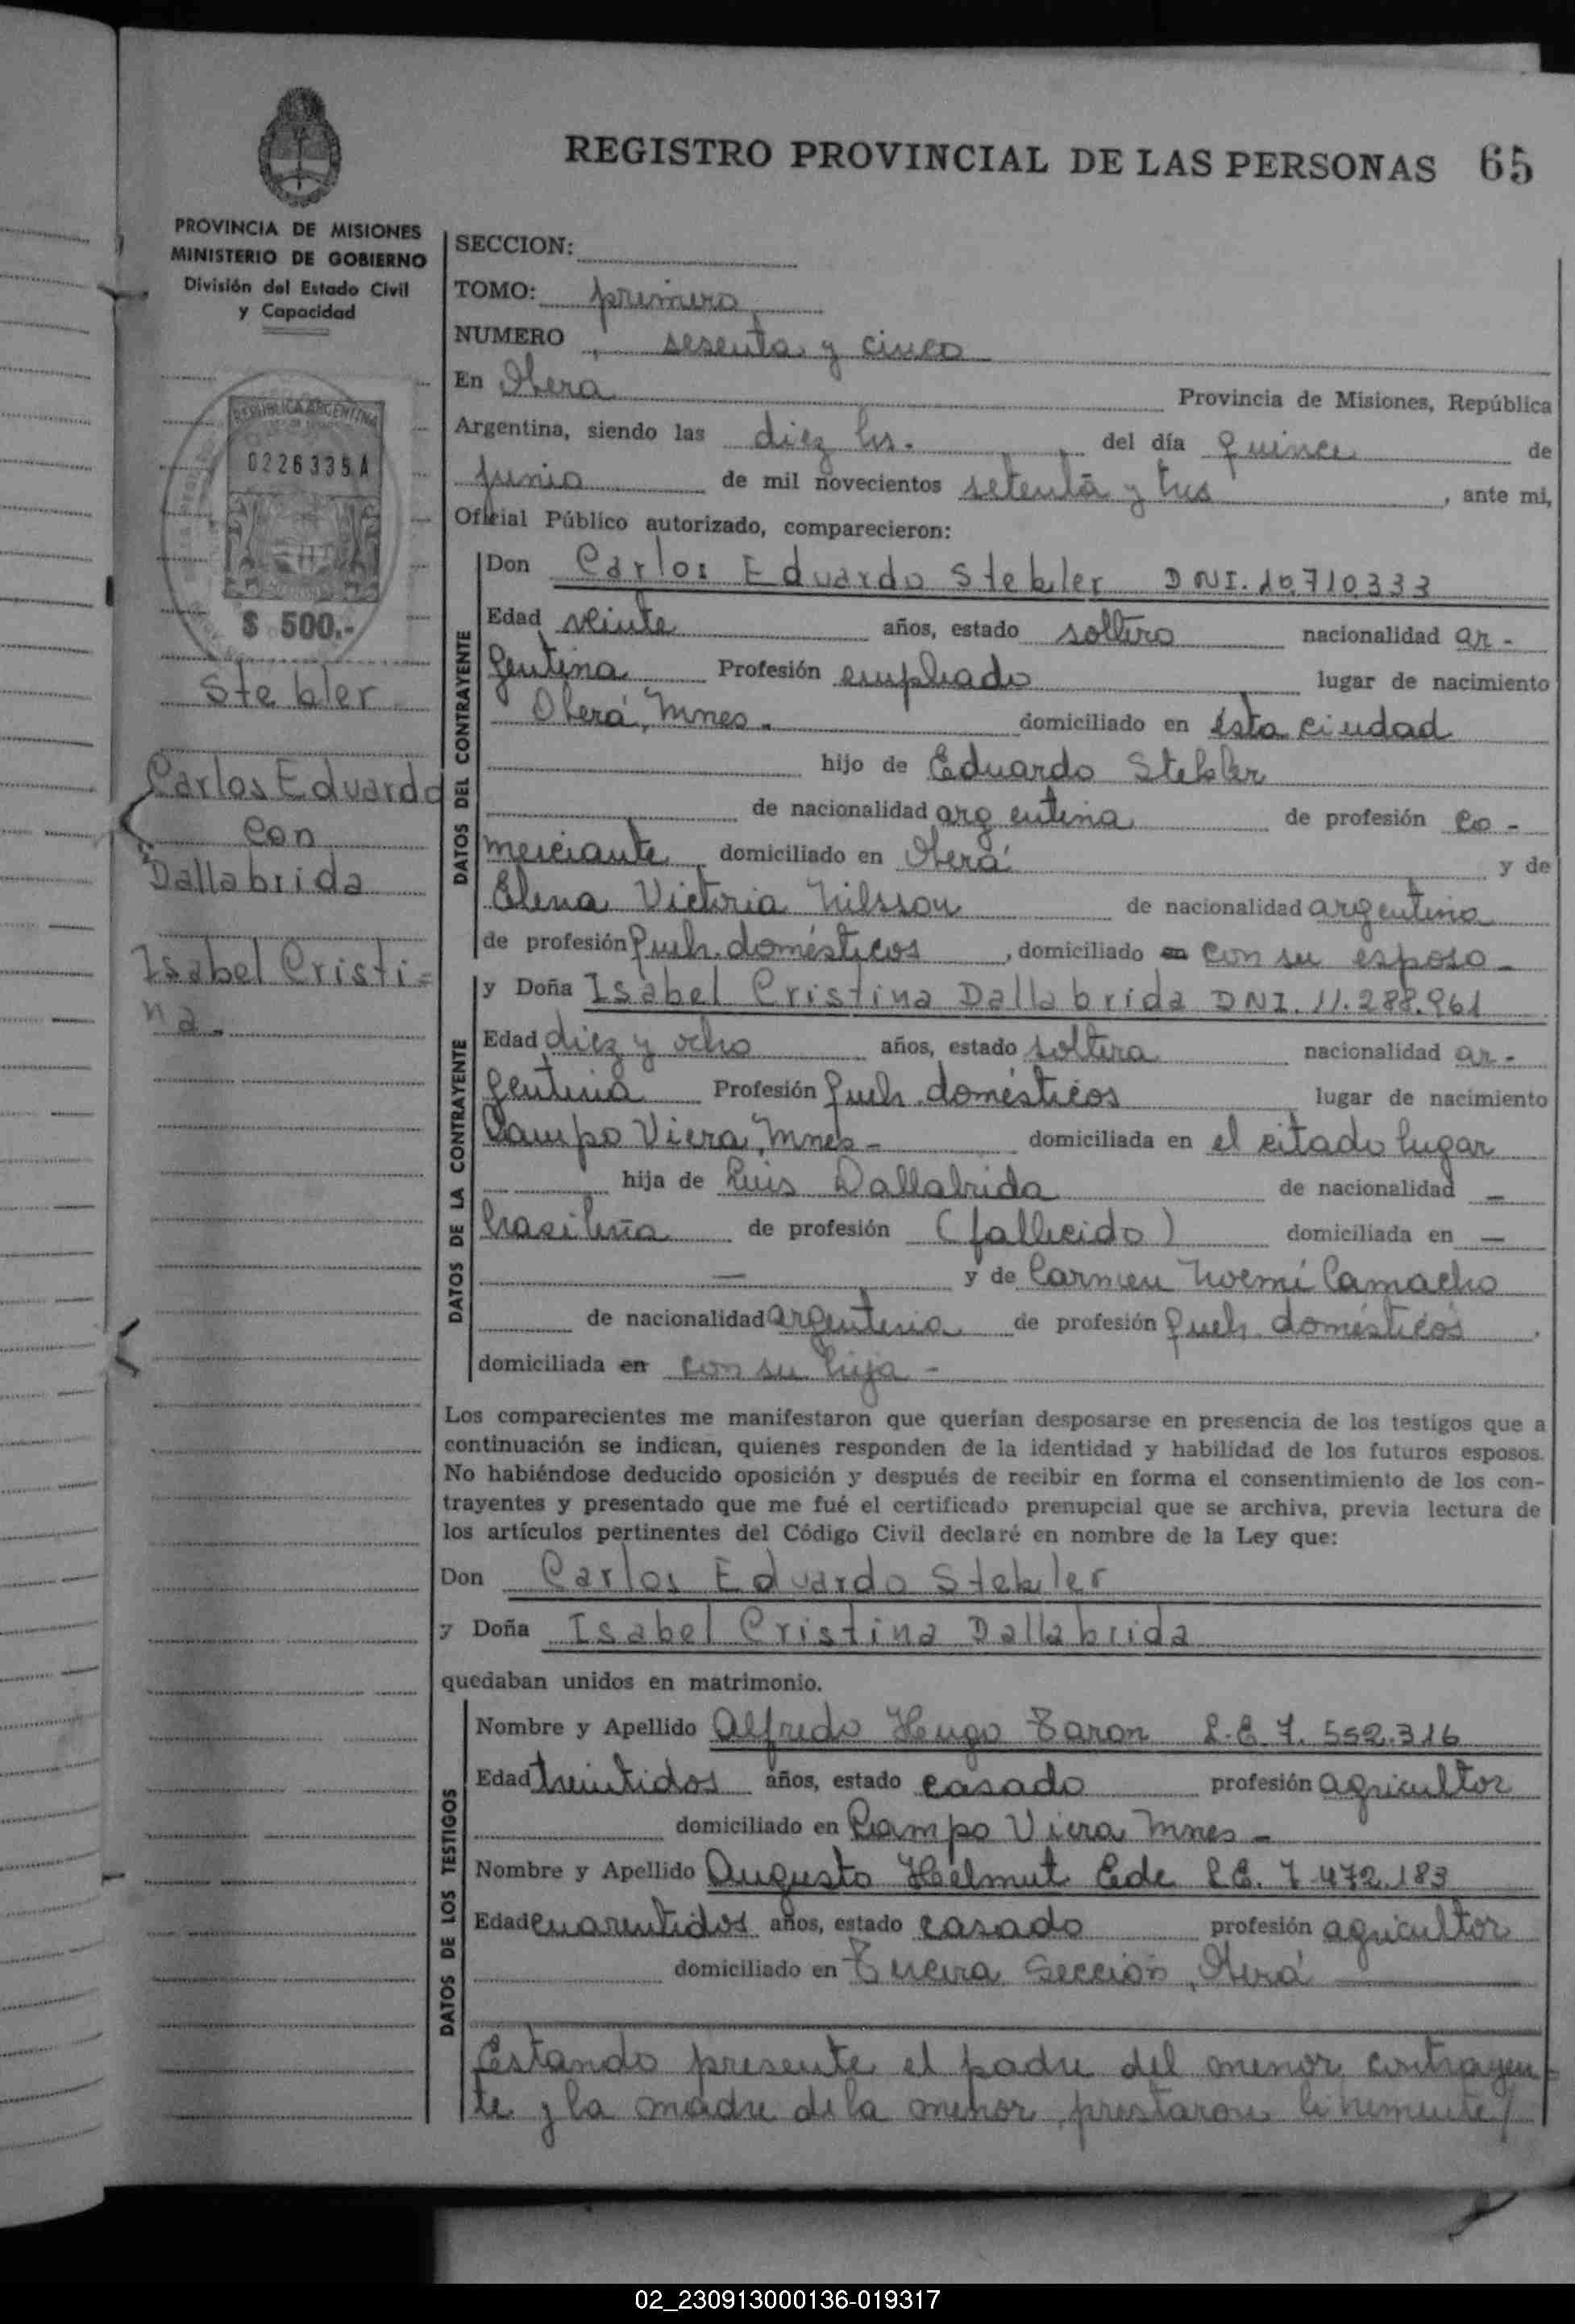 REGISTRO PROVINCIAL DE LAS PERSONAS 65
PROVINCIA DE MISIONES
MINISTERIO DE GOBIERNO
División del Estado Civil
y Capacidad
REPUBLICA ARGENTINA
0226335A
$ 500.-
Stekler
Carlos Eduardo
con
Dallabrida
Isabel Cristi=
na.
SECCION:
TOMO: primero
NUMERO sesenta y cinco
En Oberá Provincia de Misiones, República
Argentina, siendo las diez hs. del día quince de
junio de mil novecientos setenta y tres, ante mi,
Oficial Público autorizado, comparecieron:
DATOS DEL CONTRAYENTE
Don Carlos Eduardo Stekler DNI. 10.710.333
Edad veinte años, estado soltero nacionalidad ar-
gentina Profesión empleado lugar de nacimiento
Oberá, Mnes. domiciliado en ésta ciudad
hijo de Eduardo Stekler
de nacionalidad argentina de profesión co-
merciante domiciliado en Oberá y de
Elena Victoria Nilsson de nacionalidad argentina
de profesión queh. domésticos, domiciliado en con su esposo-
DATOS DE LA CONTRAYENTE
y Doña Isabel Cristina Dallabrida DNI. 11.288.961
Edad diez y ocho años, estado soltera nacionalidad ar-
gentina Profesión queh. domésticos lugar de nacimiento
Campo Viera, Mnes- domiciliada en el citado lugar
hija de Luis Dallabrida de nacionalidad -
brasileña de profesión (fallecido) domiciliada en -
- y de Carmen Noemí Camacho
de nacionalidad argentina de profesión queh. domésticos,
domiciliada en con su hija-
Los comparecientes me manifestaron que querían desposarse en presencia de los testigos que a
continuación se indican, quienes responden de la identidad y habilidad de los futuros esposos.
No habiéndose deducido oposición y después de recibir en forma el consentimiento de los con-
trayentes y presentado que me fué el certificado prenupcial que se archiva, previa lectura de
los artículos pertinentes del Código Civil declaré en nombre de la Ley que:
Don Carlos Eduardo Stekler
y Doña Isabel Cristina Dallabrida
quedaban unidos en matrimonio.
DATOS DE LOS TESTIGOS
Nombre y Apellido Alfredo Hugo Baron L.E. 7.552.316
Edad treintidos años, estado casado profesión agricultor
domiciliado en Campo Viera Mnes-
Nombre y Apellido Augusto Helmut Ede L.E. 7.472.183
Edad cuarentidos años, estado casado profesión agricultor
domiciliado en Tercera Sección, Oberá
Estando presente el padre del menor contrayen-
te y la madre de la menor, prestaron
02_230913000136-019317